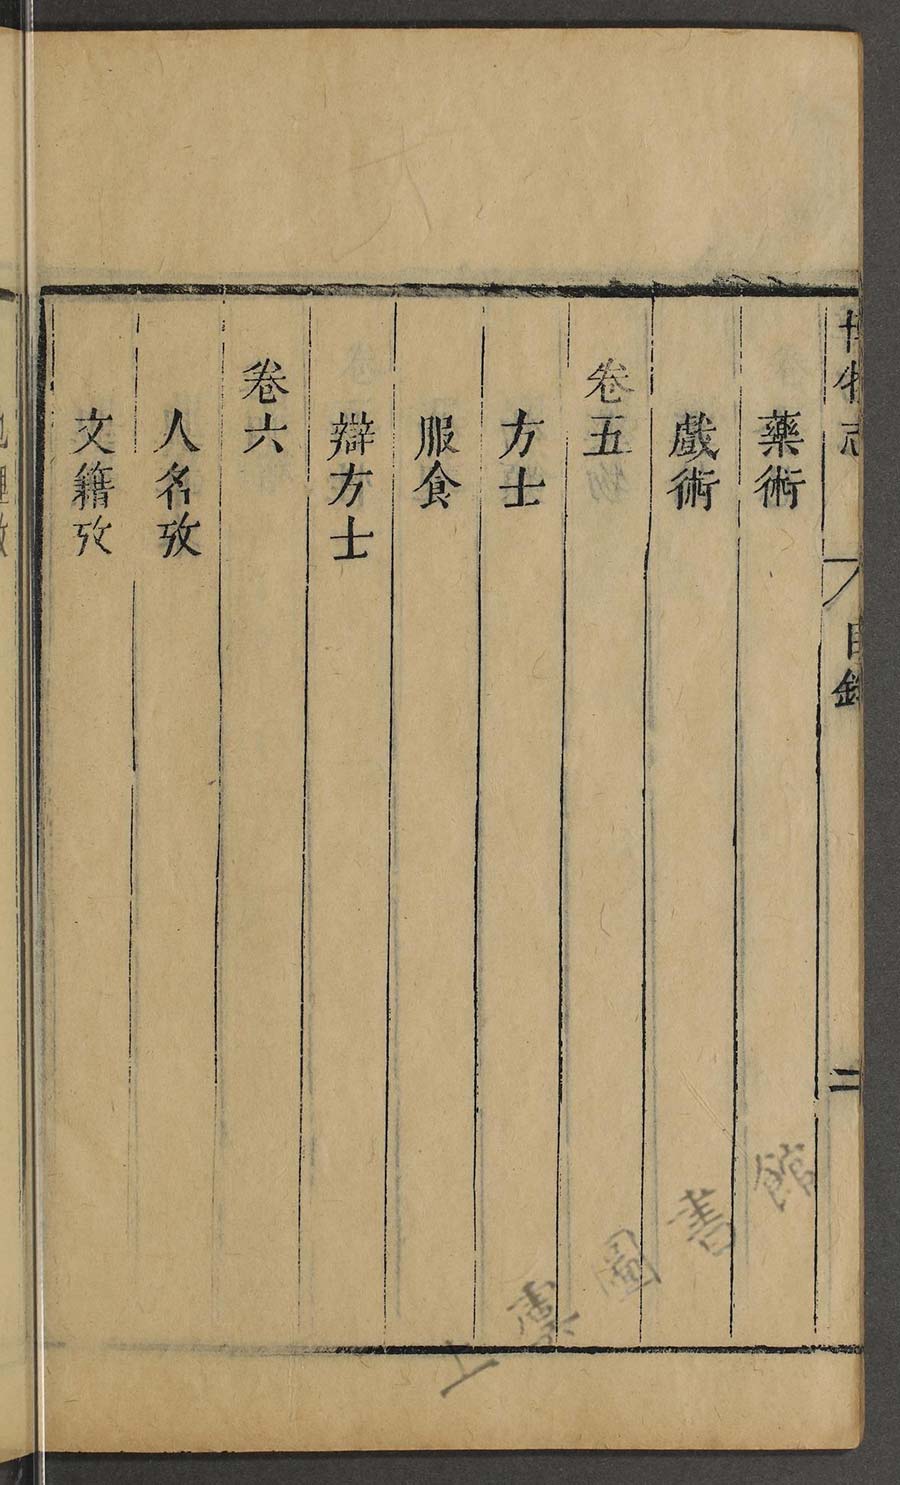 博物志 目錄 二
藥術
戲術
卷五
方士
服食
辯方士
卷六
人名攷
文籍攷
上虞圖書館